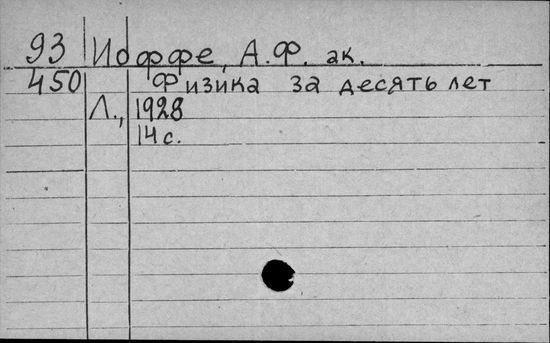 93 Иоффе, А.Ф. ак.
450 Физика за десять лет
Л., 1928
14 с.